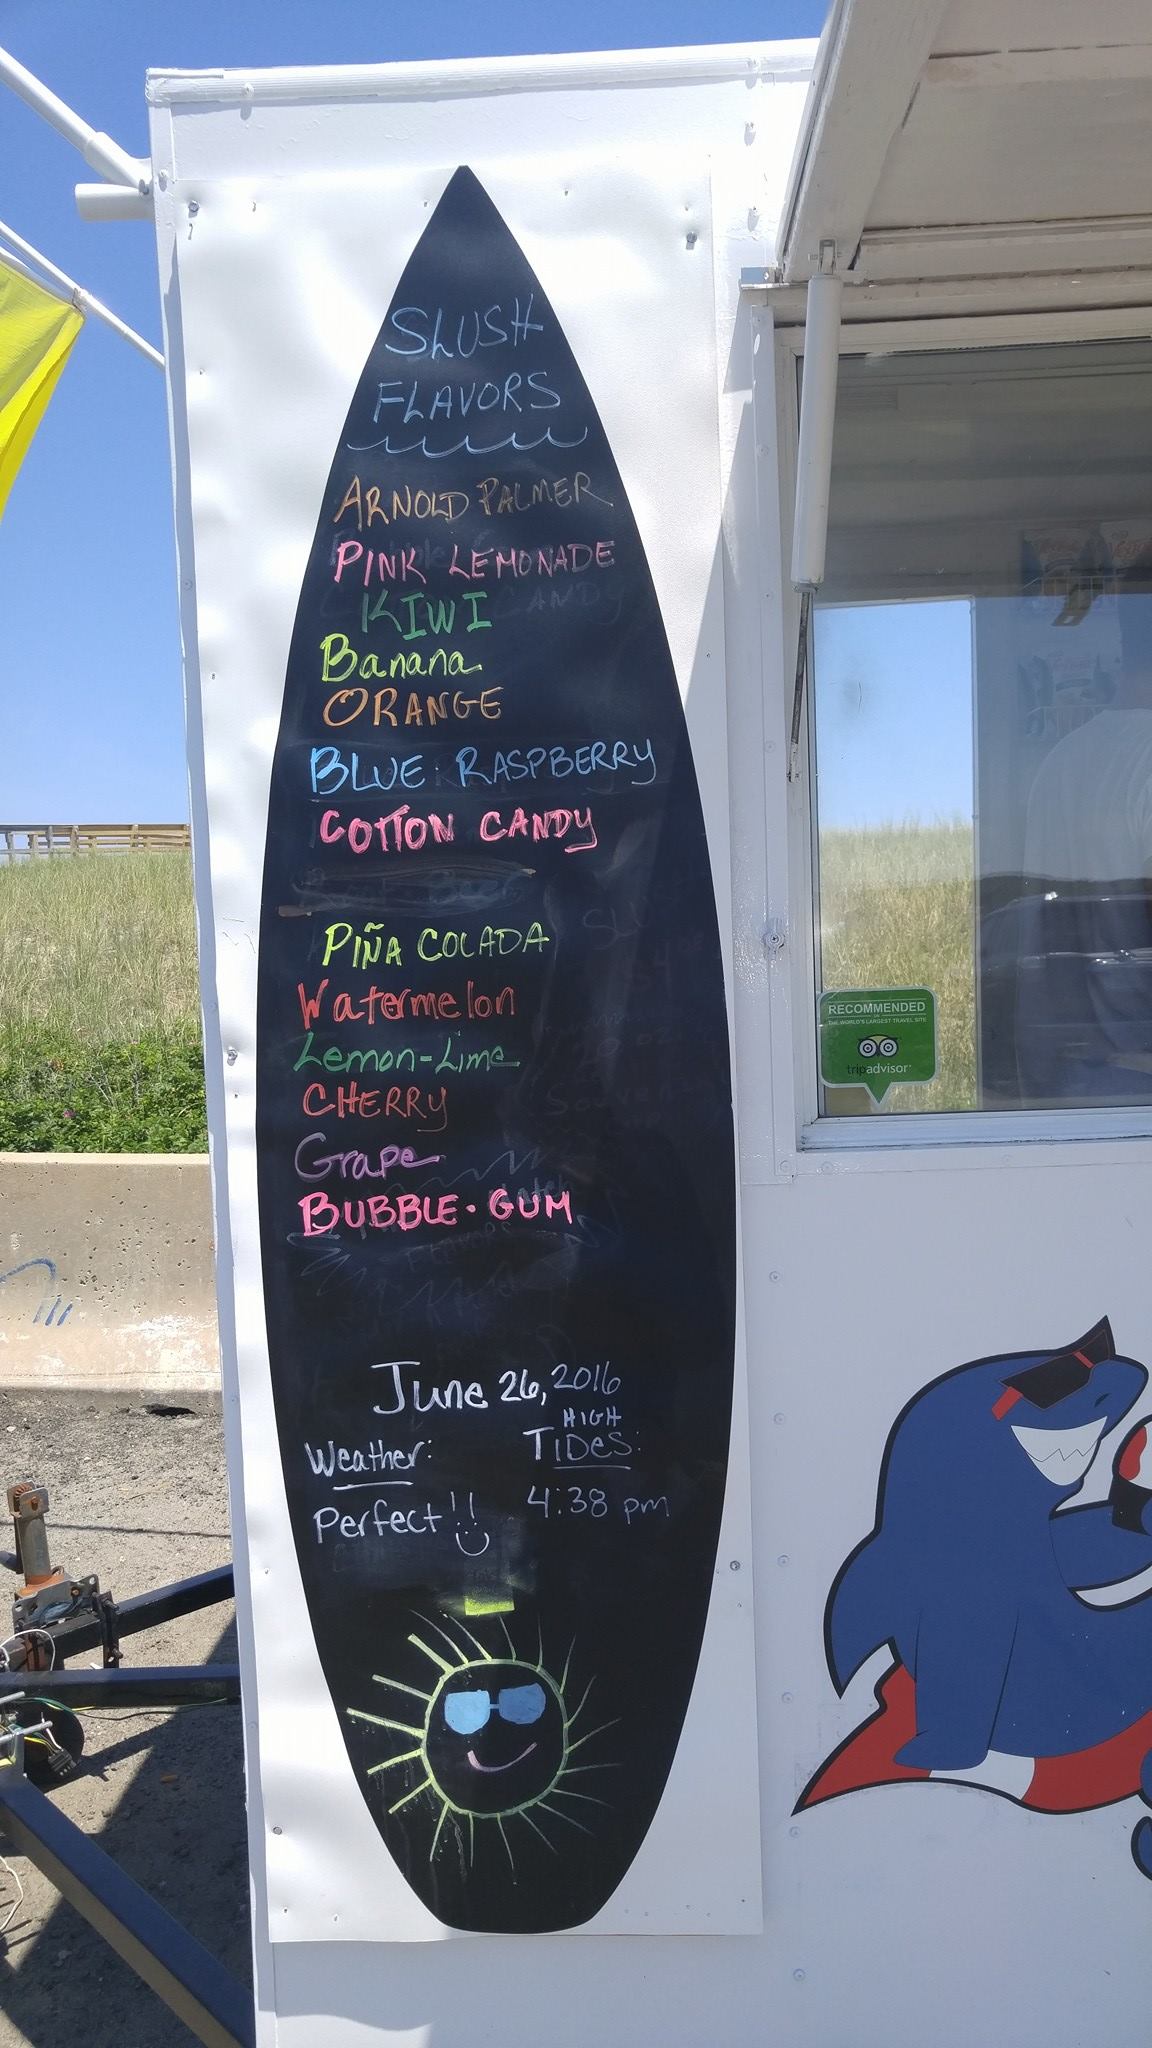 SLUSH
FLAVORS
ARNOLD PALMER
PINK LEMONADE
KIWI
Banana
ORANGE
BLUE RASPBERRY
COTTON CANDY
PIÑA COLADA
Watermelon
Lemon-Lime
CHERRY
Grape
BUBBLE · GUM
June 26, 2016
Weather:
Perfect!!
HIGH
TIDES:
4:38 pm
RECOMMENDED
ON
THE WORLD'S LARGEST TRAVEL SITE
tripadvisor